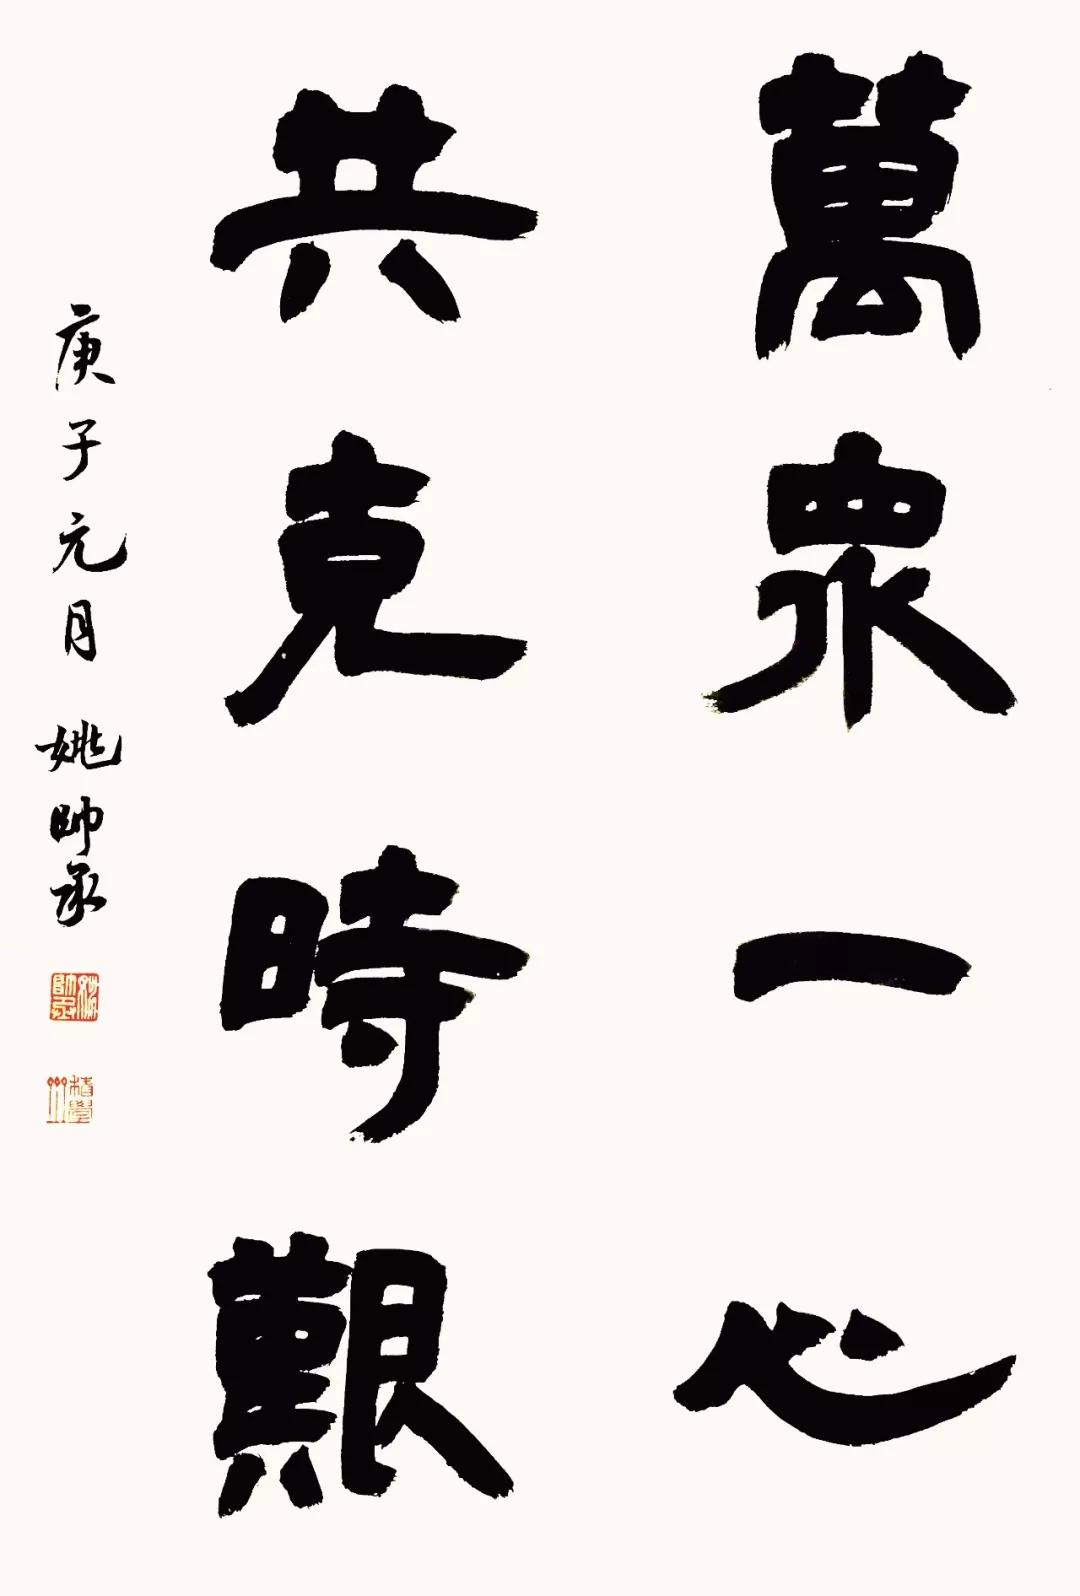 萬眾一心
共克時艱
庚子元月 姚帥承